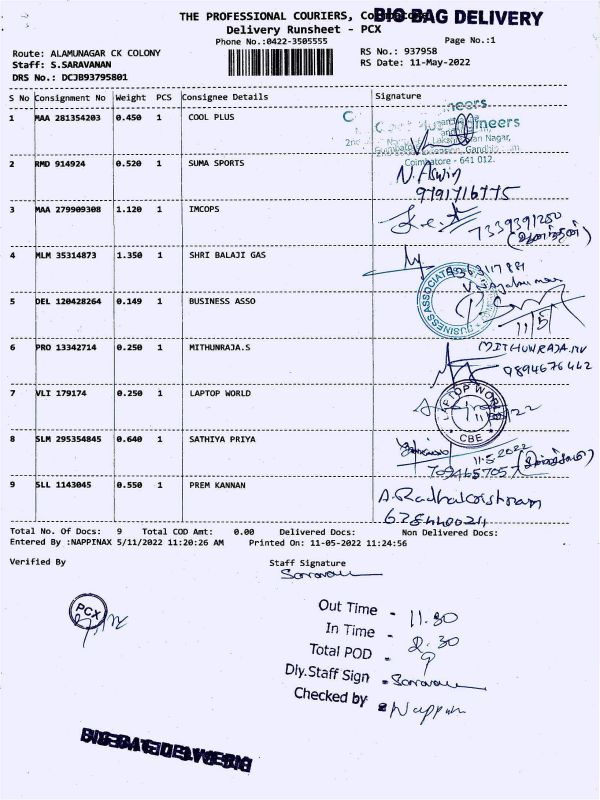 THE PROFESSIONAL COURIERS, Coimbatore
BIG BAG DELIVERY
Delivery Runsheet - PCX
Phone No.:0422-3505555
Page No.:1
Route: ALAMUNAGAR CK COLONY
RS No.: 937958
Staff: S.SARAVANAN
RS Date: 11-May-2022
DRS No.: DCJB93795801
S No Consignment No Weight PCS Consignee Details Signature
1 MAA 281354203 0.450 1 COOL PLUS
Coimbatore - 641 012.
2 RMD 914924 0.520 1 SUMA SPORTS N. Aswin
9791716775
3 MAA 279909308 1.120 1 IMCOPS
7339391280
4 MLM 35314873 1.350 1 SHRI BALAJI GAS
5 DEL 120428264 0.149 1 BUSINESS ASSO BUSINESS ASSOCIATES
11/5
6 PRO 13342714 0.250 1 MITHUNRAJA.S MITHUNRAJA.MV
9894676442
7 VLI 179174 0.250 1 LAPTOP WORLD LAPTOP WORLD
CBE
8 SLM 295354845 0.640 1 SATHIYA PRIYA 11.5.2022
7094657057
9 SLL 1143045 0.550 1 PREM KANNAN A.Radhakrishnan
6284400211
Total No. Of Docs: 9 Total COD Amt: 0.00 Delivered Docs: Non Delivered Docs:
Entered By :NAPPINAX 5/11/2022 11:20:26 AM Printed On: 11-05-2022 11:24:56
Verified By Staff Signature
Saravan
PCX
Out Time - 11.30
In Time - 2.30
Total POD - 9
Dly.Staff Sign - Saravan
Checked by - Nappin